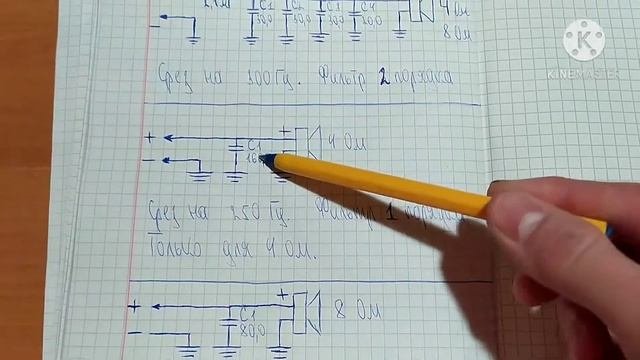 C1 C2 C1 C4 4 ом
20,0 8 ом
KINEMASTER
Срез на 100 Гц. Фильтр 2 порядка
+ + 4 Ом
- C1
Срез на 250 Гц. Фильтр 1
Только для 4 Ом.
+ + 8 Ом
- C1
80,0